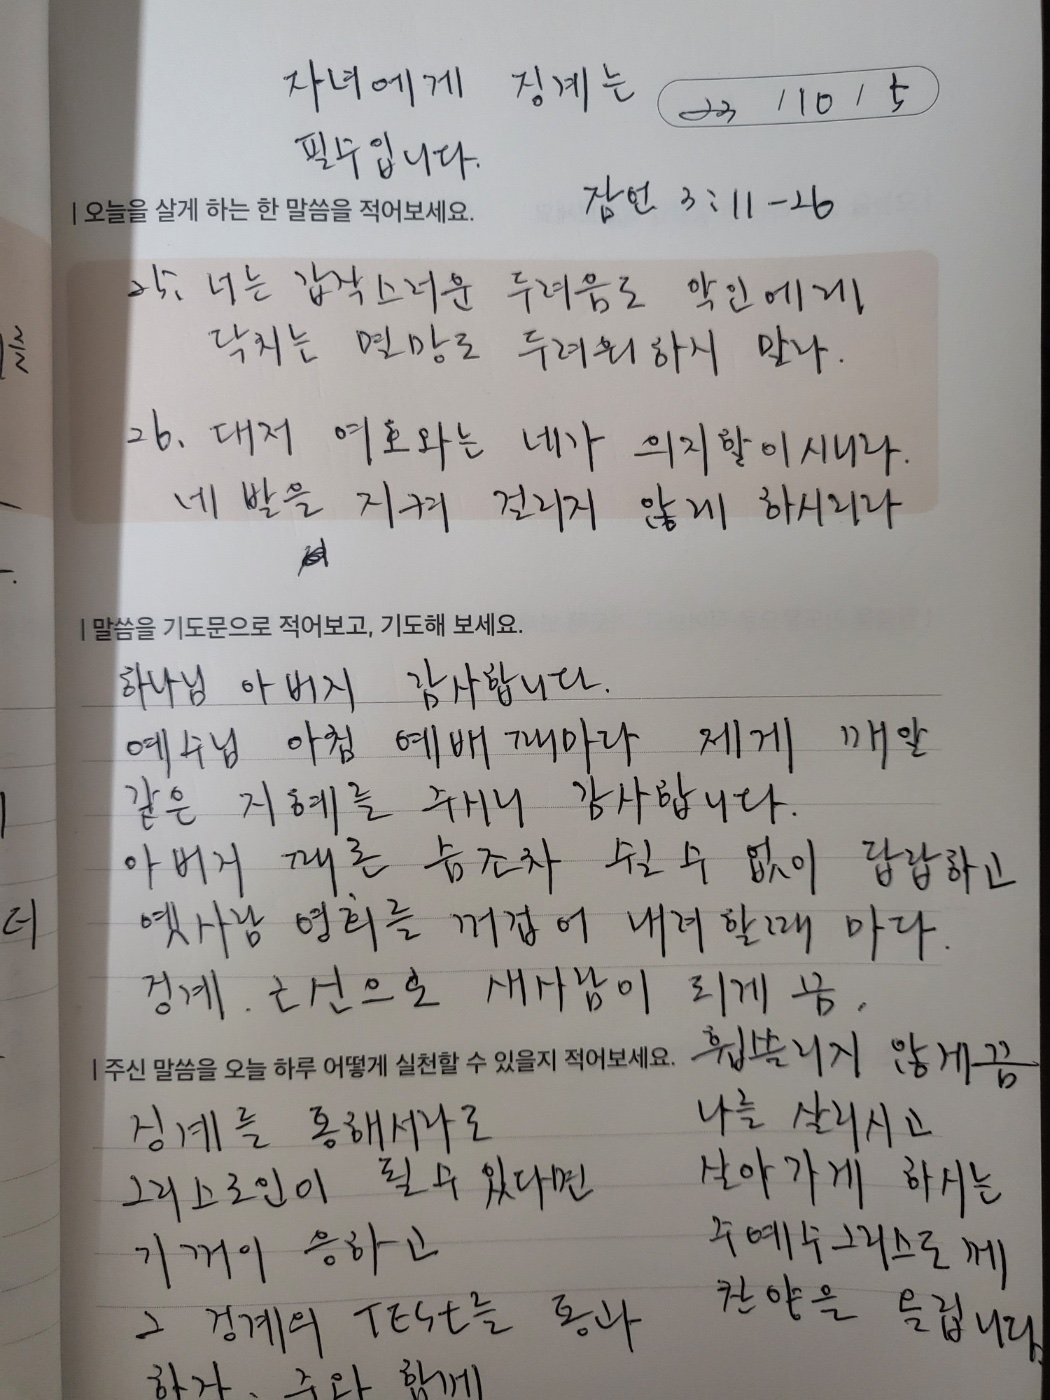 자녀에게 징계는
23 / 10 / 5
필수입니다.
잠언 3:11-26
| 오늘을 살게 하는 한 말씀을 적어보세요.
25. 너는 갑작스러운 두려움도 악인에게
닥치는 멸망도 두려워하지 말라.
26. 대저 여호와는 네가 의지할이시니라.
네 발을 지켜 걸리지 않게 하시리라
| 말씀을 기도문으로 적어보고, 기도해 보세요.
하나님 아버지 감사합니다.
예수님 아침 예배때마다 제게 깨알
같은 지혜를 주시니 감사합니다.
아버지 때론 숨조차 쉴 수 없이 답답하고
옛사람 영희를 꺼집어 내려할때 마다.
징계. 근신으로 새사람이 되게 끔,
| 주신 말씀을 오늘 하루 어떻게 실천할 수 있을지 적어보세요.
휩쓸리지 않게끔
나를 살리시고
살아가게 하시는
주예수그리스도께
찬양을 올립니다.
징계를 통해서라도
그리스도인이 될 수 있다면
기꺼이 응하고
그 징계의 TEST를 통과
하자. 주와 함께